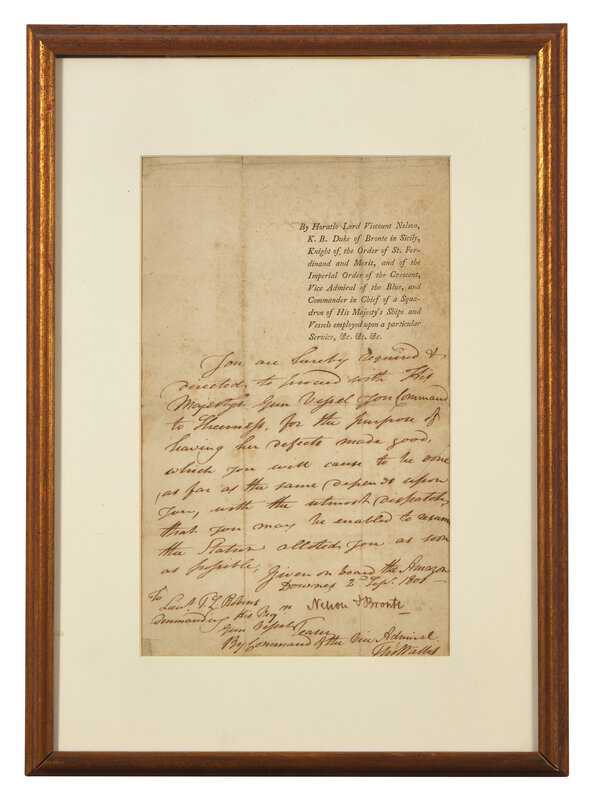 By Horatio Lord Viscount Nelson,
K. B. Duke of Bronte in Sicily,
Knight of the Order of St. Fer-
dinand and Merit, and of the
Imperial Order of the Crescent,
Vice Admiral of the Blue, and
Commander in Chief of a Squa-
dron of His Majesty's Ships and
Vessels employed upon a particular
Service, &c. &c. &c.
You are hereby required &
directed, to proceed with His
Majesty's Gun Vessel you Command
to Sheerness, for the purpose of
having her defects made good,
which you will cause to be done
as far as the same depends upon
you, with the utmost dispatch,
that you may be enabled to resume
the Station alloted you as soon
as possible,
Given on board the Amazon
Downes 2d Sepr. 1801
To
Lieut. T. L. Robins
Commanding His Majs
Gun Vessel Teaser
Nelson & Bronte
By Command of the Vice Admiral
Thos Wallis